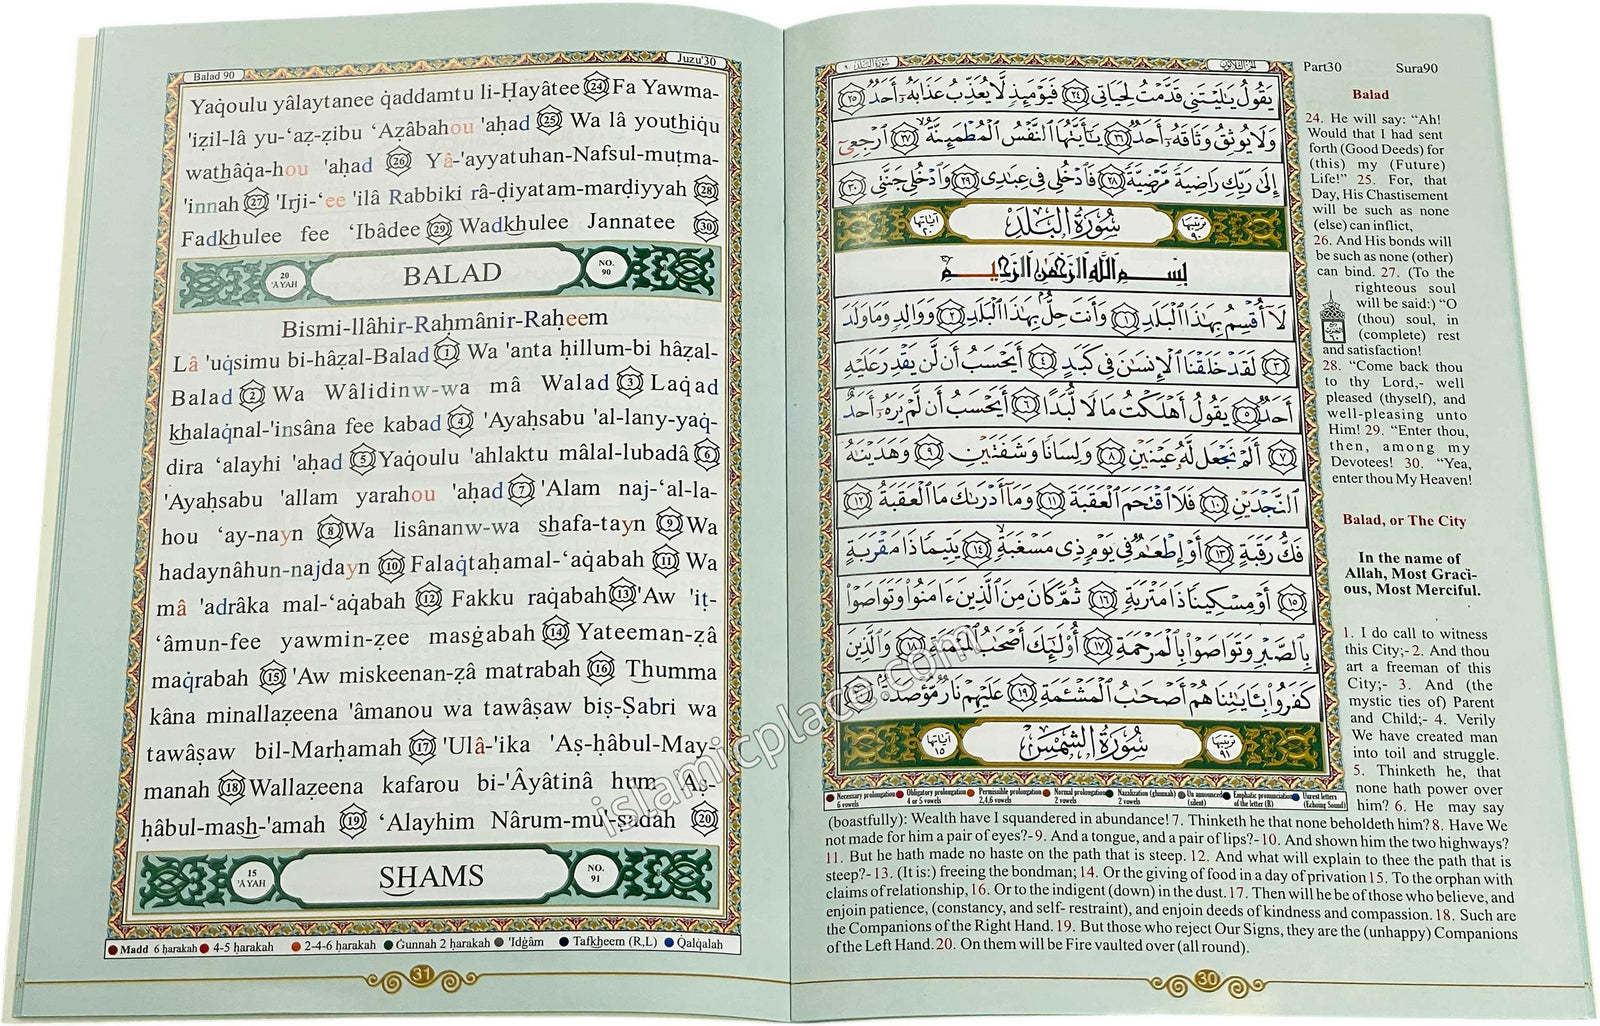 Balad 90
Juzu'30
Yaqoulu yâlaytanee qaddamtu li-Ḥayâtee 24 Fa Yawma-
'iẓil-lâ yu-‘aẓ-ẓibu ‘Aẓâbahou 'aḥad 25 Wa lâ youthiqu
wathâqa-hou 'aḥad 26 Yâ-'ayyatuhan-Nafsul-muṭma-
'innah 27 'Irji-‘ee 'ilâ Rabbiki râ-ḍiyatam-marḍiyyah 28
Fadkhulee fee ‘Ibâdee 29 Wadkhulee Jannatee 30
20 'ÂYAH
BALAD
NO. 90
Bismi-llâhir-Raḥmânir-Raḥeem
Lâ 'uqsimu bi-hâẓal-Balad 1 Wa 'anta ḥillum-bi hâẓal-
Balad 2 Wa Wâlidinw-wa mâ Walad 3 Laqad
khalaqnal-'insâna fee kabad 4 'Ayaḥsabu 'al-lany-yaq-
dira ‘alayhi 'aḥad 5 Yaqoulu 'ahlaktu mâlal-lubadâ 6
'Ayaḥsabu 'allam yarahou 'aḥad 7 'Alam naj-‘al-la-
hou ‘ay-nayn 8 Wa lisânanw-wa shafa-tayn 9 Wa
hadaynâhun-najdayn 10 Falaqtaḥamal-‘aqabah 11 Wa
mâ 'adrâka mal-‘aqabah 12 Fakku raqabah 13 'Aw 'iṭ-
‘âmun-fee yawmin-ẓee masġabah 14 Yateeman-ẓâ
maqrabah 15 'Aw miskeenan-ẓâ matrabah 16 Thumma
kâna minallaẓeena 'âmanou wa tawâṣaw biṣ-Ṣabri wa
tawâṣaw bil-Marḥamah 17 'Ulâ-'ika 'Aṣ-ḥâbul-May-
manah 18 Wallaẓeena kafarou bi-'Âyâtinâ hum 'Aṣ-
ḥâbul-mash-'amah 19 ‘Alayhim Nârum-mu'-ṣadah 20
15 'ÂYAH
SHAMS
NO. 91
Madd 6 ḥarakah 4-5 ḥarakah 2-4-6 ḥarakah Ġunnah 2 ḥarakah 'Idġâm Tafkheem (R,L) Qalqalah
31
سورة البلد ٩٠
الجزء الثلاثون
يَقُولُ يَـٰلَيْتَنِى قَدَّمْتُ لِحَيَاتِى ٢٤ فَيَوْمَئِذٍ لَّا يُعَذِّبُ عَذَابَهُۥٓ أَحَدٌ ٢٥
وَلَا يُوثِقُ وَثَاقَهُۥٓ أَحَدٌ ٢٦ يَـٰٓأَيَّتُهَا ٱلنَّفْسُ ٱلْمُطْمَئِنَّةُ ٢٧ ٱرْجِعِىٓ
إِلَىٰ رَبِّكِ رَاضِيَةً مَّرْضِيَّةً ٢٨ فَٱدْخُلِى فِى عِبَـٰدِى ٢٩ وَٱدْخُلِى جَنَّتِى ٣٠
ترتيبها ٩٠
سُورَةُ البَلَدِ
آياتها ٢٠
بِسْمِ ٱللَّهِ ٱلرَّحْمَـٰنِ ٱلرَّحِيمِ
لَآ أُقْسِمُ بِهَـٰذَا ٱلْبَلَدِ ١ وَأَنتَ حِلٌّۢ بِهَـٰذَا ٱلْبَلَدِ ٢ وَوَالِدٍ وَمَا وَلَدَ
٣ لَقَدْ خَلَقْنَا ٱلْإِنسَـٰنَ فِى كَبَدٍ ٤ أَيَحْسَبُ أَن لَّن يَقْدِرَ عَلَيْهِ
أَحَدٌ ٥ يَقُولُ أَهْلَكْتُ مَالًا لُّبَدًا ٦ أَيَحْسَبُ أَن لَّمْ يَرَهُۥٓ أَحَدٌ
٧ أَلَمْ نَجْعَل لَّهُۥ عَيْنَيْنِ ٨ وَلِسَانًا وَشَفَتَيْنِ ٩ وَهَدَيْنَـٰهُ
ٱلنَّجْدَيْنِ ١٠ فَلَا ٱقْتَحَمَ ٱلْعَقَبَةَ ١١ وَمَآ أَدْرَىٰكَ مَا ٱلْعَقَبَةُ ١٢
فَكُّ رَقَبَةٍ ١٣ أَوْ إِطْعَـٰمٌ فِى يَوْمٍ ذِى مَسْغَبَةٍ ١٤ يَتِيمًا ذَا مَقْرَبَةٍ
١٥ أَوْ مِسْكِينًا ذَا مَتْرَبَةٍ ١٦ ثُمَّ كَانَ مِنَ ٱلَّذِينَ ءَامَنُوا۟ وَتَوَاصَوْا۟
بِٱلصَّبْرِ وَتَوَاصَوْا۟ بِٱلْمَرْحَمَةِ ١٧ أُو۟لَـٰٓئِكَ أَصْحَـٰبُ ٱلْمَيْمَنَةِ ١٨ وَٱلَّذِينَ
كَفَرُوا۟ بِـَٔايَـٰتِنَا هُمْ أَصْحَـٰبُ ٱلْمَشْـَٔمَةِ ١٩ عَلَيْهِمْ نَارٌ مُّؤْصَدَةٌۢ ٢٠
ترتيبها ٩١
سُورَةُ الشَّمْسِ
آياتها ١٥
Necessary prolongation 6 vowels Obligatory prolongation 4 or 5 vowels Permissible prolongation 2,4,6 vowels Normal prolongation 2 vowels Nazalization (ghunnah) 2 vowels Un announced (silent) Emphatic pronunciation of the letter (R) Unrest letters (Echoing Sound)
Part30 Sura90
Balad
24. He will say: “Ah!
Would that I had sent
forth (Good Deeds) for
(this) my (Future)
Life!” 25. For, that
Day, His Chastisement
will be such as none
(else) can inflict,
26. And His bonds will
be such as none (other)
can bind. 27. (To the
righteous soul
will be said:) “O
(thou) soul, in
(complete) rest
and satisfaction!
28. “Come back thou
to thy Lord,- well
pleased (thyself), and
well-pleasing unto
Him! 29. “Enter thou,
then, among my
Devotees! 30. “Yea,
enter thou My Heaven!
Balad, or The City
In the name of
Allah, Most Graci-
ous, Most Merciful.
1. I do call to witness
this City;- 2. And thou
art a freeman of this
City;- 3. And (the
mystic ties of) Parent
and Child;- 4. Verily
We have created man
into toil and struggle.
5. Thinketh he, that
none hath power over
him? 6. He may say
(boastfully): Wealth have I squandered in abundance! 7. Thinketh he that none beholdeth him? 8. Have We
not made for him a pair of eyes?- 9. And a tongue, and a pair of lips?- 10. And shown him the two highways?
11. But he hath made no haste on the path that is steep. 12. And what will explain to thee the path that is
steep?- 13. (It is:) freeing the bondman; 14. Or the giving of food in a day of privation 15. To the orphan with
claims of relationship, 16. Or to the indigent (down) in the dust. 17. Then will he be of those who believe, and
enjoin patience, (constancy, and self- restraint), and enjoin deeds of kindness and compassion. 18. Such are
the Companions of the Right Hand. 19. But those who reject Our Signs, they are the (unhappy) Companions
of the Left Hand. 20. On them will be Fire vaulted over (all round).
30
islamicplace.com